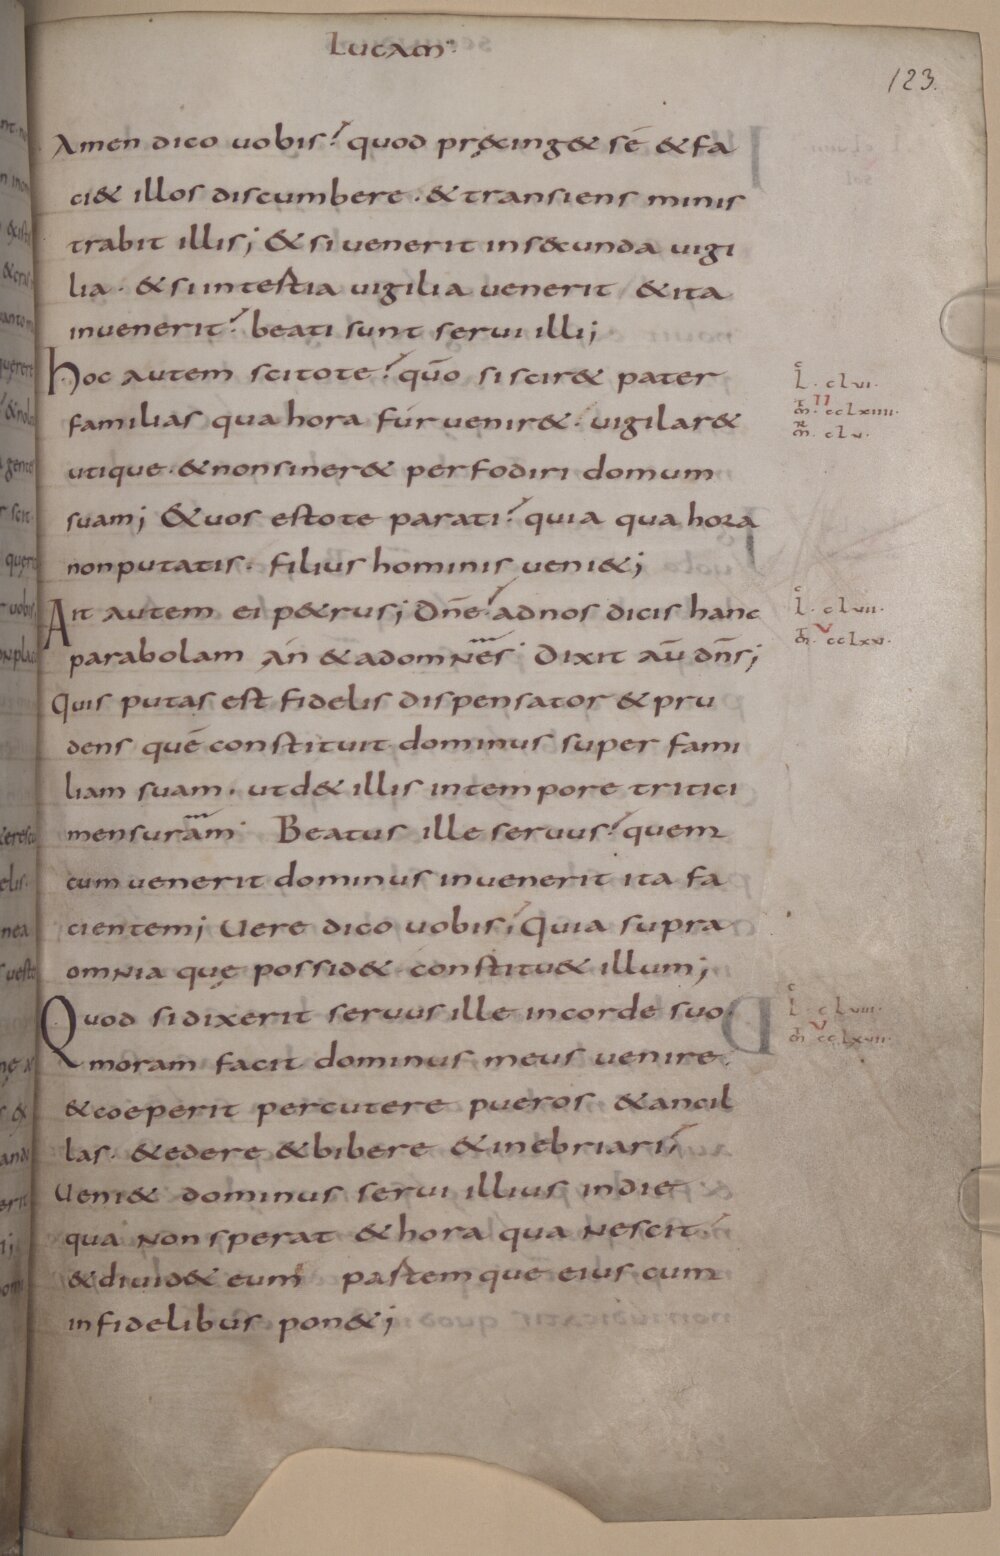 Lucam
123.
Amen dico uobis? quod precing& sé & fa
ci& illos discumbere · & transiens minis
trabit illis; & si uenerit in secunda uigi
lia · & si in testia uigilia uenerit / & ita
inuenerit? beati sunt serui illi;
hoc autem scitote? qūo si scir& pater
familias qua hora fúr uenir& · uigilar&
utique · & non siner& perfodiri domum
suam; & uos estote parati? quia qua hora
non putatis · filius hominis ueni&;
Ait autem ei p&rus; Dñe? ad nos dicis hanc
parabolam án & ad omnes · Dixit aū dñs;
Quis putas est fidelis dispensator & pru
dens qué constituit dominus super fami
liam suam · ut d& illis in tempore tritici
mensuram · Beatus ille seruus? quem
cum uenerit dominus inuenerit ita fa
cientem; Uere dico uobis? Quia supra
omnia quę possid& · constitu& illum;
Quod si dixerit seruus ille in corde suo ·
moram facit dominus meus uenire ·
& coeperit percutere pueros & ancil
las · & edere & bibere & inebriari?
Ueni& dominus serui illius in die
qua non sperat & hora qua nescit
& diuid& eum partemque eius cum
infidelibus pon&;
L · clvi ·
m̄ · cclxiiii ·
m̄ · clv ·
L · clvii ·
m̄ · cclxvi ·
L · clviii ·
m̄ · cclxvii ·